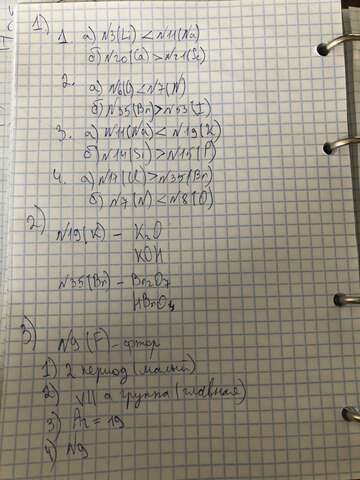 1)
1. а) №3(Li) < №11(Na)
б) №20(Ca) > №21(Sc)
2. а) №6(C) < №7(N)
б) №35(Br) > №53(I)
3. а) №11(Na) < №19(K)
б) №14(Si) > №15(P)
4. а) №17(Cl) > №35(Br)
б) №7(N) < №8(O)
2)
№19(K) - K₂O
KOH
№35(Br) - Br₂O₇
HBrO₄
3)
№9 (F) - фтор
1) 2 период (малый)
2) VII а группа (главная)
3) Ar = 19
4) №9